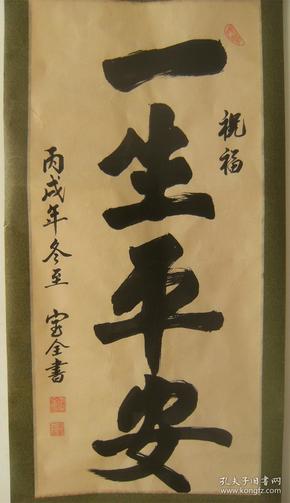 祝福
一生平安
丙戌年冬至 宝全書
孔夫子旧书网
kongfz.com